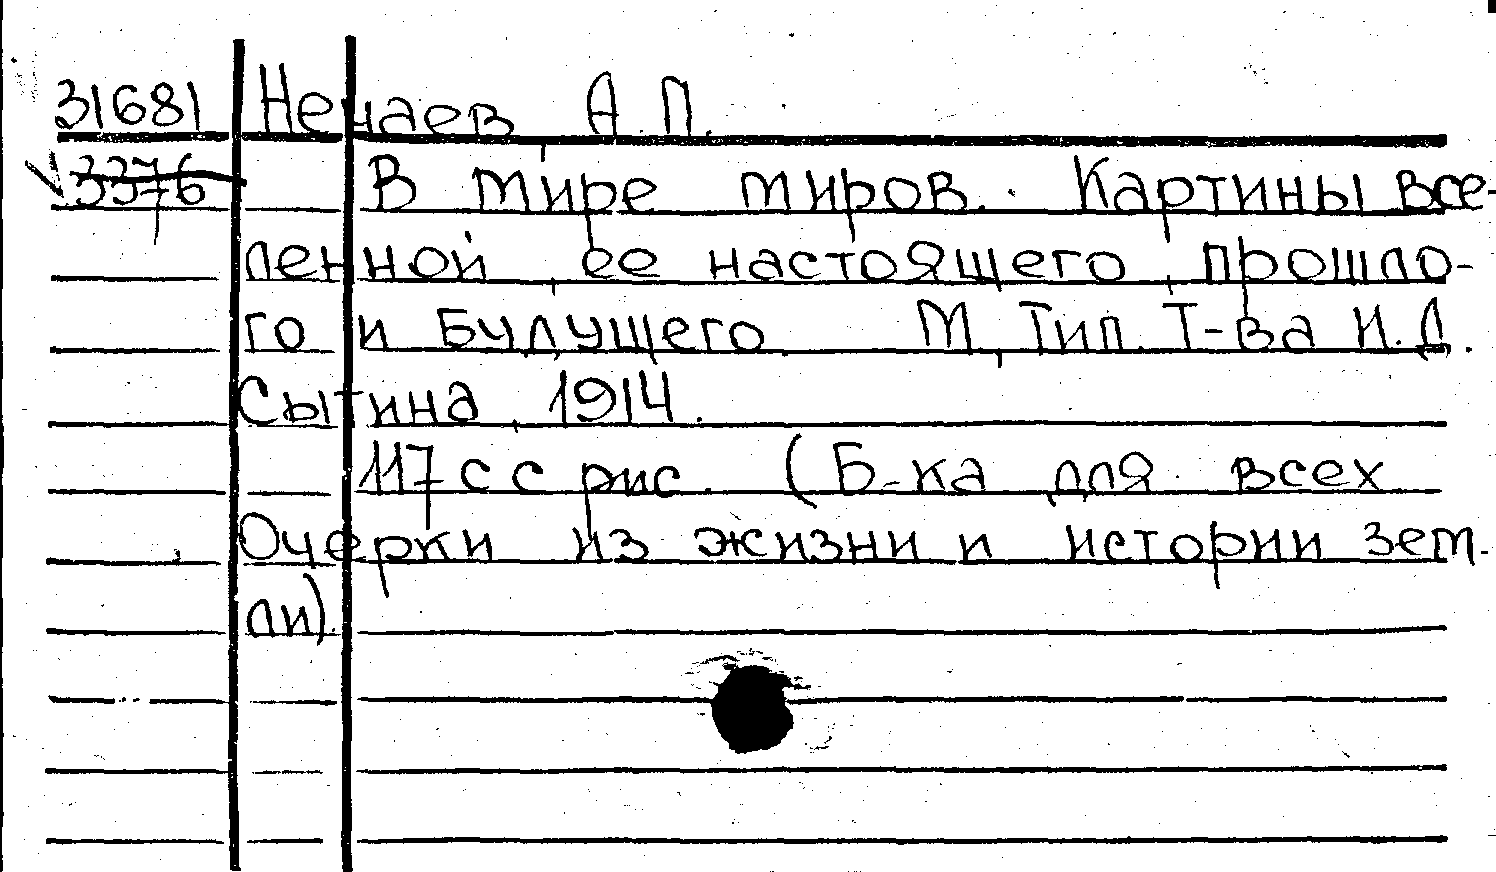 31681 Нечаев А.П.
3376 В мире миров. Картины все-
ленной, ее настоящего, прошло-
го и будущего М, Тип. Т-ва И.Д.
Сытина, 1914.
117 с с рис. (Б-ка для всех
Очерки из жизни и истории зем-
ли).